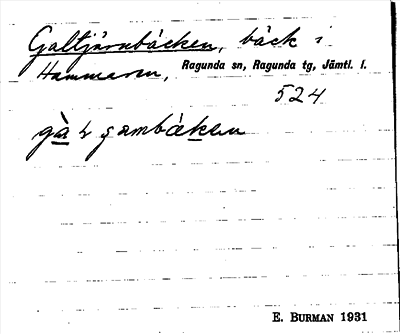 Galtjärnbäcken, bäck i
Hammaren, Ragunda sn, Ragunda tg, Jämtl. l.
524
E. BURMAN 1931